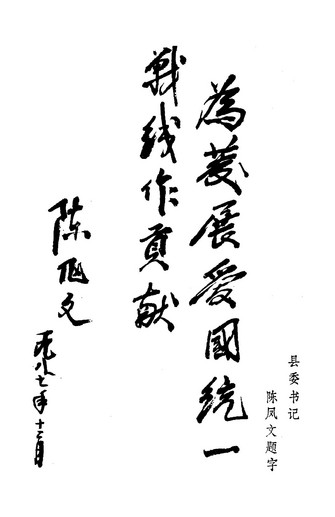 為發展愛國統一
戰线作貢献
陈凤文
一九八七年十二月
县委书记
陈凤文题字